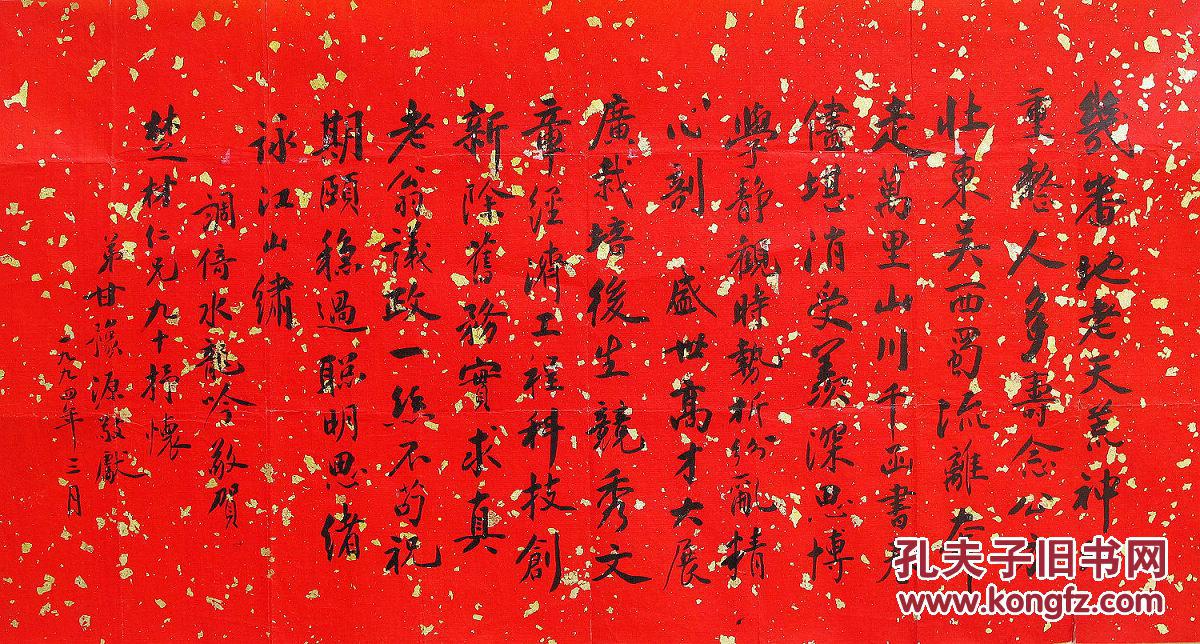 幾番地老天荒神州
重整人多壽念公少
壯東吳西蜀流離奔
走萬里山川千函書卷
儘堪消受羨深思博
學靜觀時勢析紛亂精
心剖 盛世高才大展
廣栽培後生競秀文
章經濟工程科技創
新除舊務實求真
老翁議政一絲不苟祝
期頤穩過聰明思緒
詠江山繡
調倚水龍吟敬賀
楚材仁兄九十抒懷
弟甘源敬獻
一九九四年三月
孔夫子旧书网
www.kongfz.com